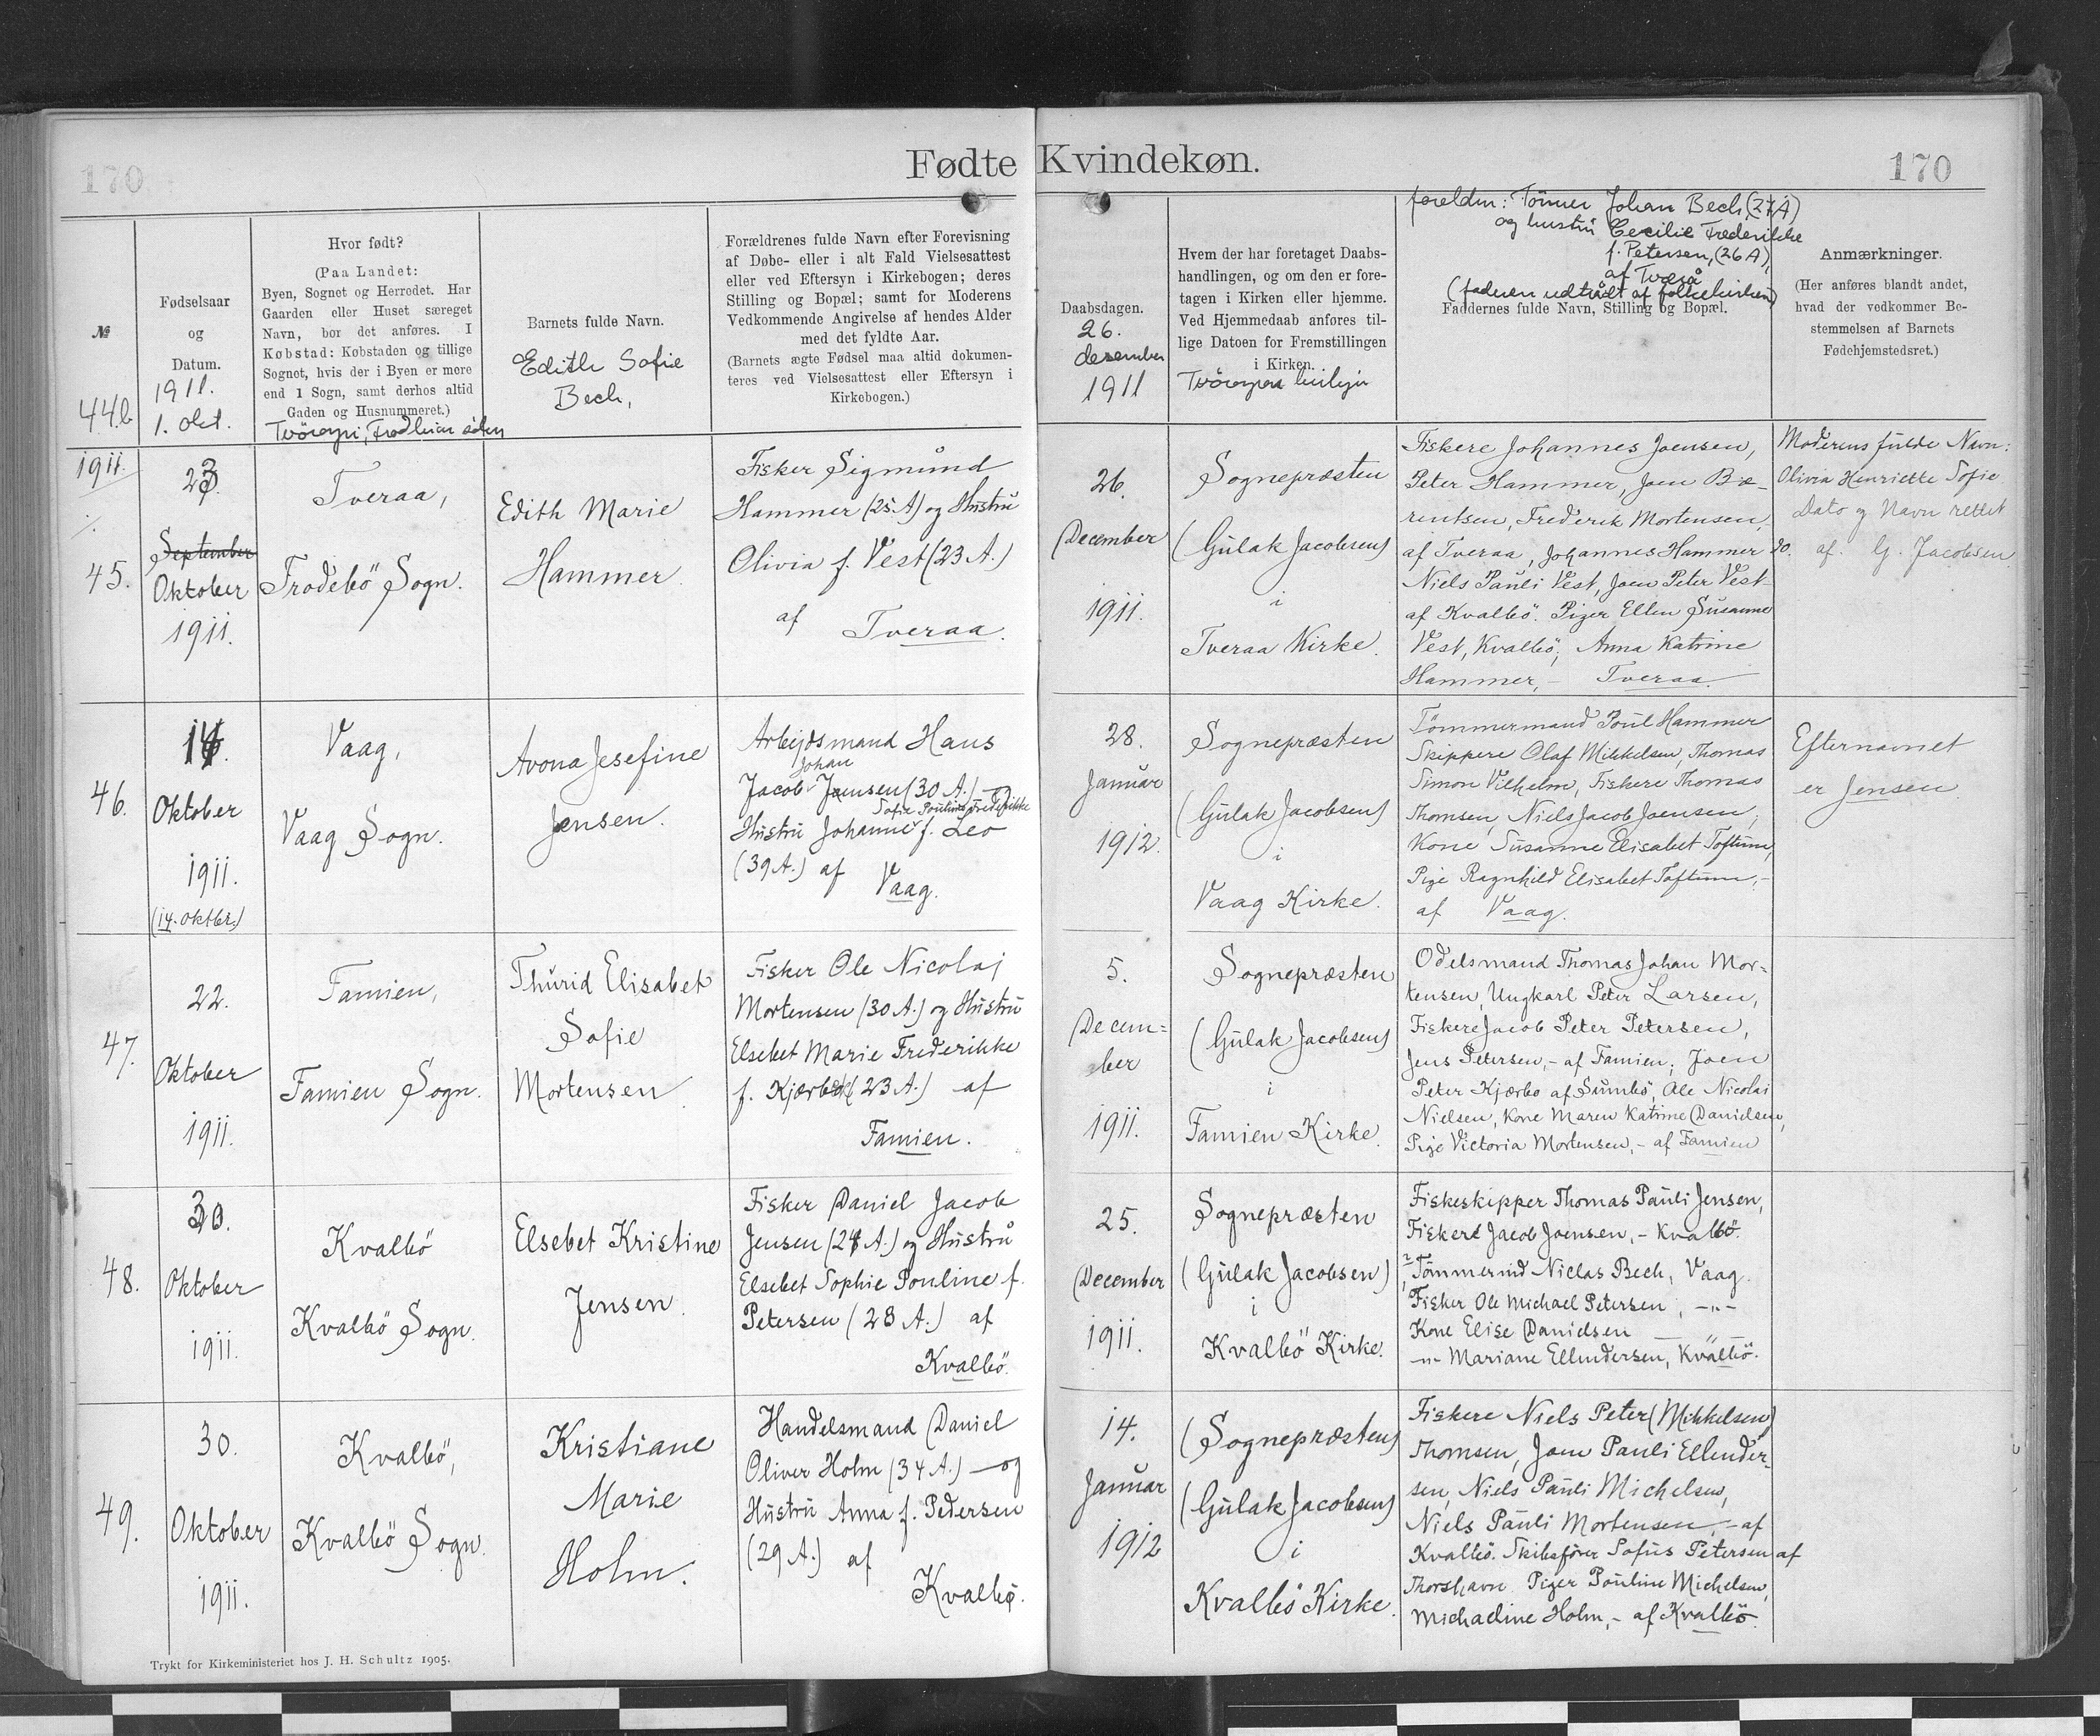 170
Fødte Kvindekøn.
170
№
Fødselsaar
og
Datum.
Hvor født?
(Paa Landet:
Byen, Sognet og Herredet. Har
Gaarden eller Huset særeget
Navn, bør det anføres. I
Købstad: Købstaden og tillige
Sognet, hvis der i Byen er mere
end 1 Sogn, samt derhos altid
Gaden og Husnummeret.)
Barnets fulde Navn.
Forældrenes fulde Navn efter Forevisning
af Døbe- eller i alt Fald Vielsesattest
eller ved Eftersyn i Kirkebogen; deres
Stilling og Bopæl; samt for Moderens
Vedkommende Angivelse af hendes Alder
med det fyldte Aar.
(Barnets ægte Fødsel maa altid dokumen-
teres ved Vielsesattest eller Eftersyn i
Kirkebogen.)
Daabsdagen.
Hvem der har foretaget Daabs-
handlingen, og om den er fore-
tagen i Kirken eller hjemme.
Ved Hjemmedaab anføres til-
lige Datoen for Fremstillingen
i Kirken.
Faddernes fulde Navn, Stilling og Bopæl.
Anmærkninger.
(Her anføres blandt andet,
hvad der vedkommer Be-
stemmelsen af Barnets
Fødehjemstedsret.)
44b
1911.
1. okt.
Edith Sofie
Bech,
26.
desember
1911
Tvöroyra
Tönner Johan Bech, (27A)
og hustri Cecilie Frederikke
f. Petersen, (26 A),
af Tverå
(faderen udtrådt af folkekirken)
1911.
45.
23.
September
Oktober
1911.
Tveraa,
Frodebö Sogn.
Edith Marie
Hammer
Fisker Sigmund
Hammer (25 A) og Hustru
Olivia f. Vest (23 A.)
af Tveraa.
26.
December
1911.
Sognepræsten
(Gulak Jacobsen)
i
Tveraa Kirke.
Fiskere Johannes Joensen,
Peter Hammer, Joen Bæ-
rentsen, Frederik Mortensen,
af Tveraa, Johannes Hammer
Niels Pauli Vest, Joen Peter Vest
af Kvalbö. Piger Ellen Susanne
Vest, Kvalbö, Anna Katrine
Hammer, - Tveraa.
Moderens fulde Navn:
Olivia Henriette Sofie
Dato og Navn rettet
af G. Jacobsen
46.
14.
Oktober
1911.
(14. oktbr.)
Vaag,
Vaag Sogn.
Avona Jesefine
Jensen.
Arbejdsmand Hans
Johan
Jacob Jensen (30 A.) - og
Sofie Pouline Frederikke
Hustru Johanne f. Leo
(39 A.) af Vaag.
28.
Januar
1912.
Sognepræsten
(Gulak Jacobsen)
i
Vaag Kirke.
Tömmermand Poul Hammer
Skippere Olaf Mikkelsen, Thomas
Simon Vilhelm, Fiskere Thomas
Thomsen, Niels Jacob Joensen,
Kone Susanne Elisabet Toftum,
Pige Ragnhild Elisabet Toftum, -
af Vaag.
Efternavnet
er Jensen.
47.
22.
Oktober
1911.
Famien,
Famien Sogn.
Thurid Elisabet
Sofie
Mortensen
Fisker Ole Nicolaj
Mortensen (30 A.) og Hustru
Elsebet Marie Frederikke
f. Kjærbo (23 A.) af
Famien.
5.
Decem-
ber
1911.
Sognepræsten
(Gulak Jacobsen)
i
Famien Kirke.
Odelsmand Thomas Johan Mor-
tensen, Ungkarl Peter Larsen,
Fiskere Jacob Peter Petersen,
Jens Petersen, - af Famien; Joen
Peter Kjærbo af Sumbö, Ole Nicolai
Nielsen, Kone Maren Katrine Danielsen,
Pige Victoria Mortensen, - af Famien
48.
30.
Oktober
1911.
Kvalbö
Kvalbö Sogn.
Elsebet Kristine
Jensen.
Fisker Daniel Jacob
Jensen (24 A.) og Hustru
Elsebet Sophie Pouline f.
Petersen (28 A.) af
Kvalbö.
25.
December
1911.
Sognepræsten
(Gulak Jacobsen)
i
Kvalbö Kirke.
Fiskeskipper Thomas Pauli Jensen,
Fisker Jacob Joensen, - Kvalbö.
Tömmermd Niclas Bech, Vaag.
Fisker Ole Michael Petersen, -"-
Kone Elise Danielsen
-"- Mariane Ellendersen, Kvalbö.
49.
30.
Oktober
1911.
Kvalbö,
Kvalbö Sogn.
Kristiane
Marie
Holm.
Handelsmand Daniel
Oliver Holm (34 A.) - og
Hustru Anna f. Pedersen
(29 A.) af
Kvalbö.
14.
Januar
1912
(Sognepræsten)
(Gulak Jacobsen)
i
Kvalbö Kirke.
Fiskere Niels Peter (Mikkelsen)
Thomsen, Joen Pauli Ellender-
sen, Niels Pauli Michelsen,
Niels Pauli Mortensen, - af
Kvalbö. Skibsförer Sofus Petersen af
Thorshavn. Piger Pouline Michelsen,
Michaeline Holm, - af Kvalbö.
Trykt for Kirkeministeriet hos J. H. Schultz 1905.